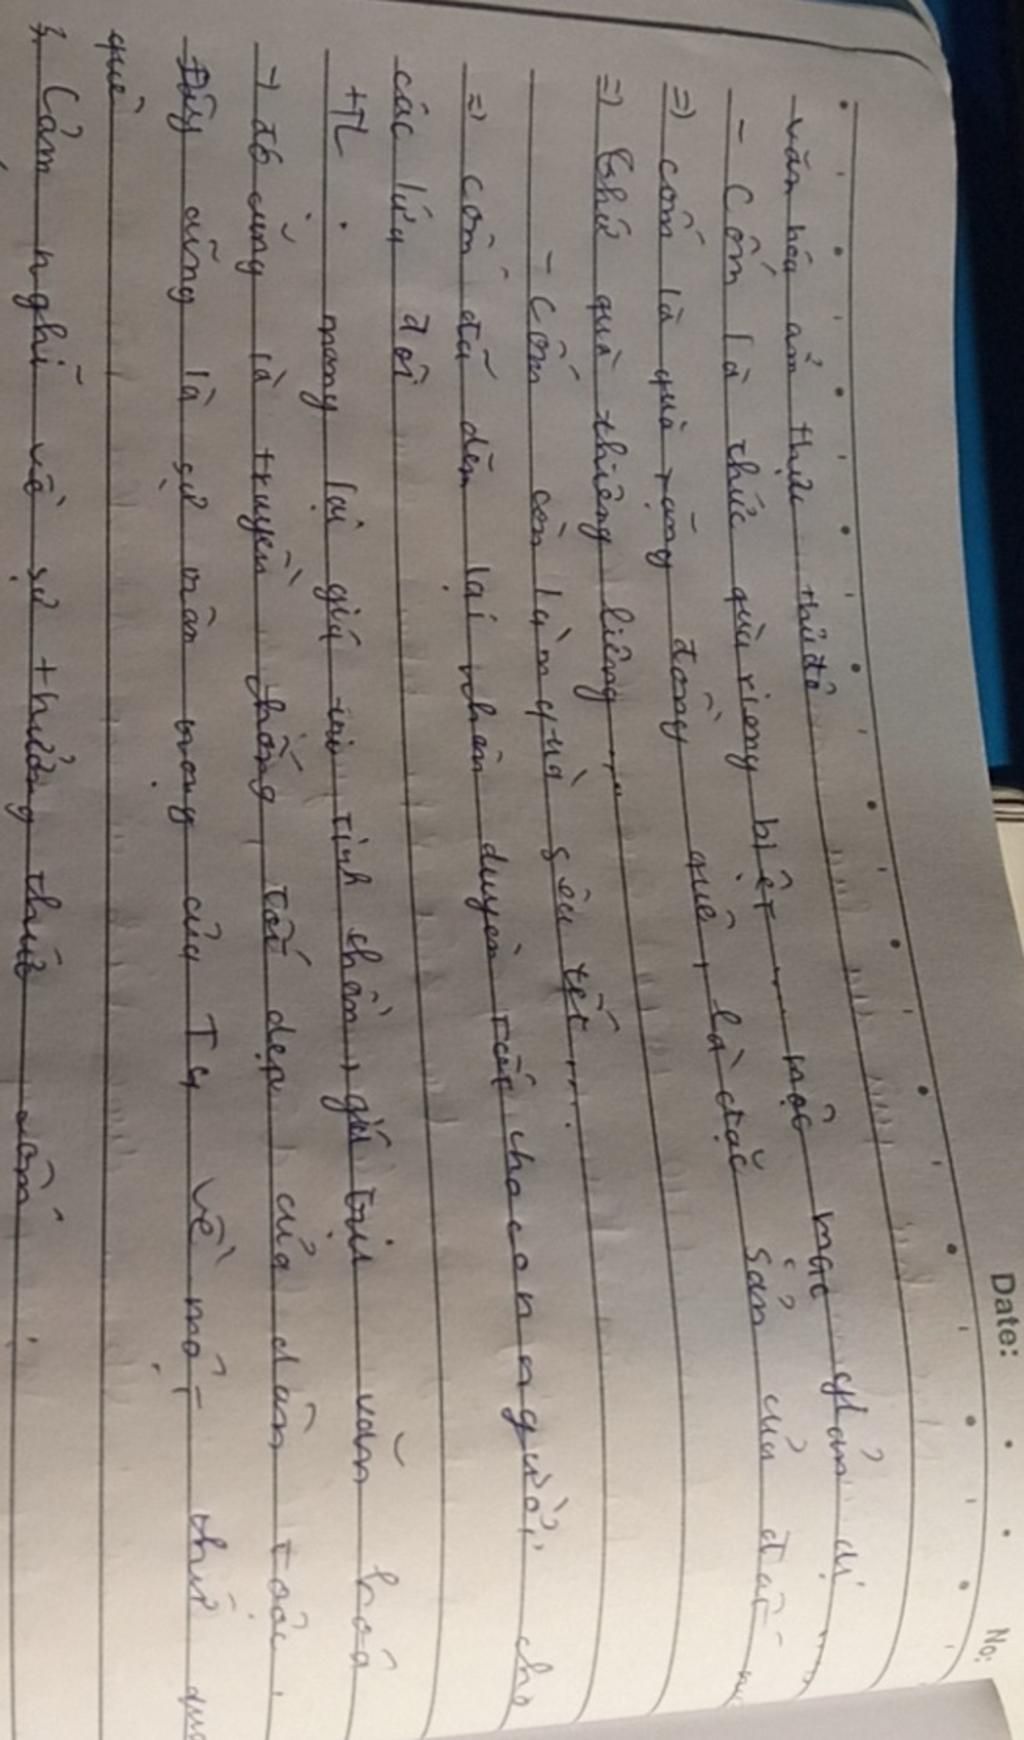 Date: No:
văn hóa ẩm thực thủ đô
- Cốm là thức quà riêng biệt ..... mộc mạc giản dị .....
=) cốm là quà tặng đồng quê, là đặc sản của đất
=) thứ quà thiêng liêng .....
- Cốm còn làm quà sêu tết .....
=) cốm đã đem lại nhân duyên tốt cho con người, cho
các lứa đôi
+TL : mang lại giá trị tinh thần, giá trị văn hoá
→ đó cũng là truyền thống tốt đẹp của dân tộc,
Đây cũng là sự trân trọng của Tg về một thứ quà
quê
3, Cảm nghĩ về sự thưởng thức cốm